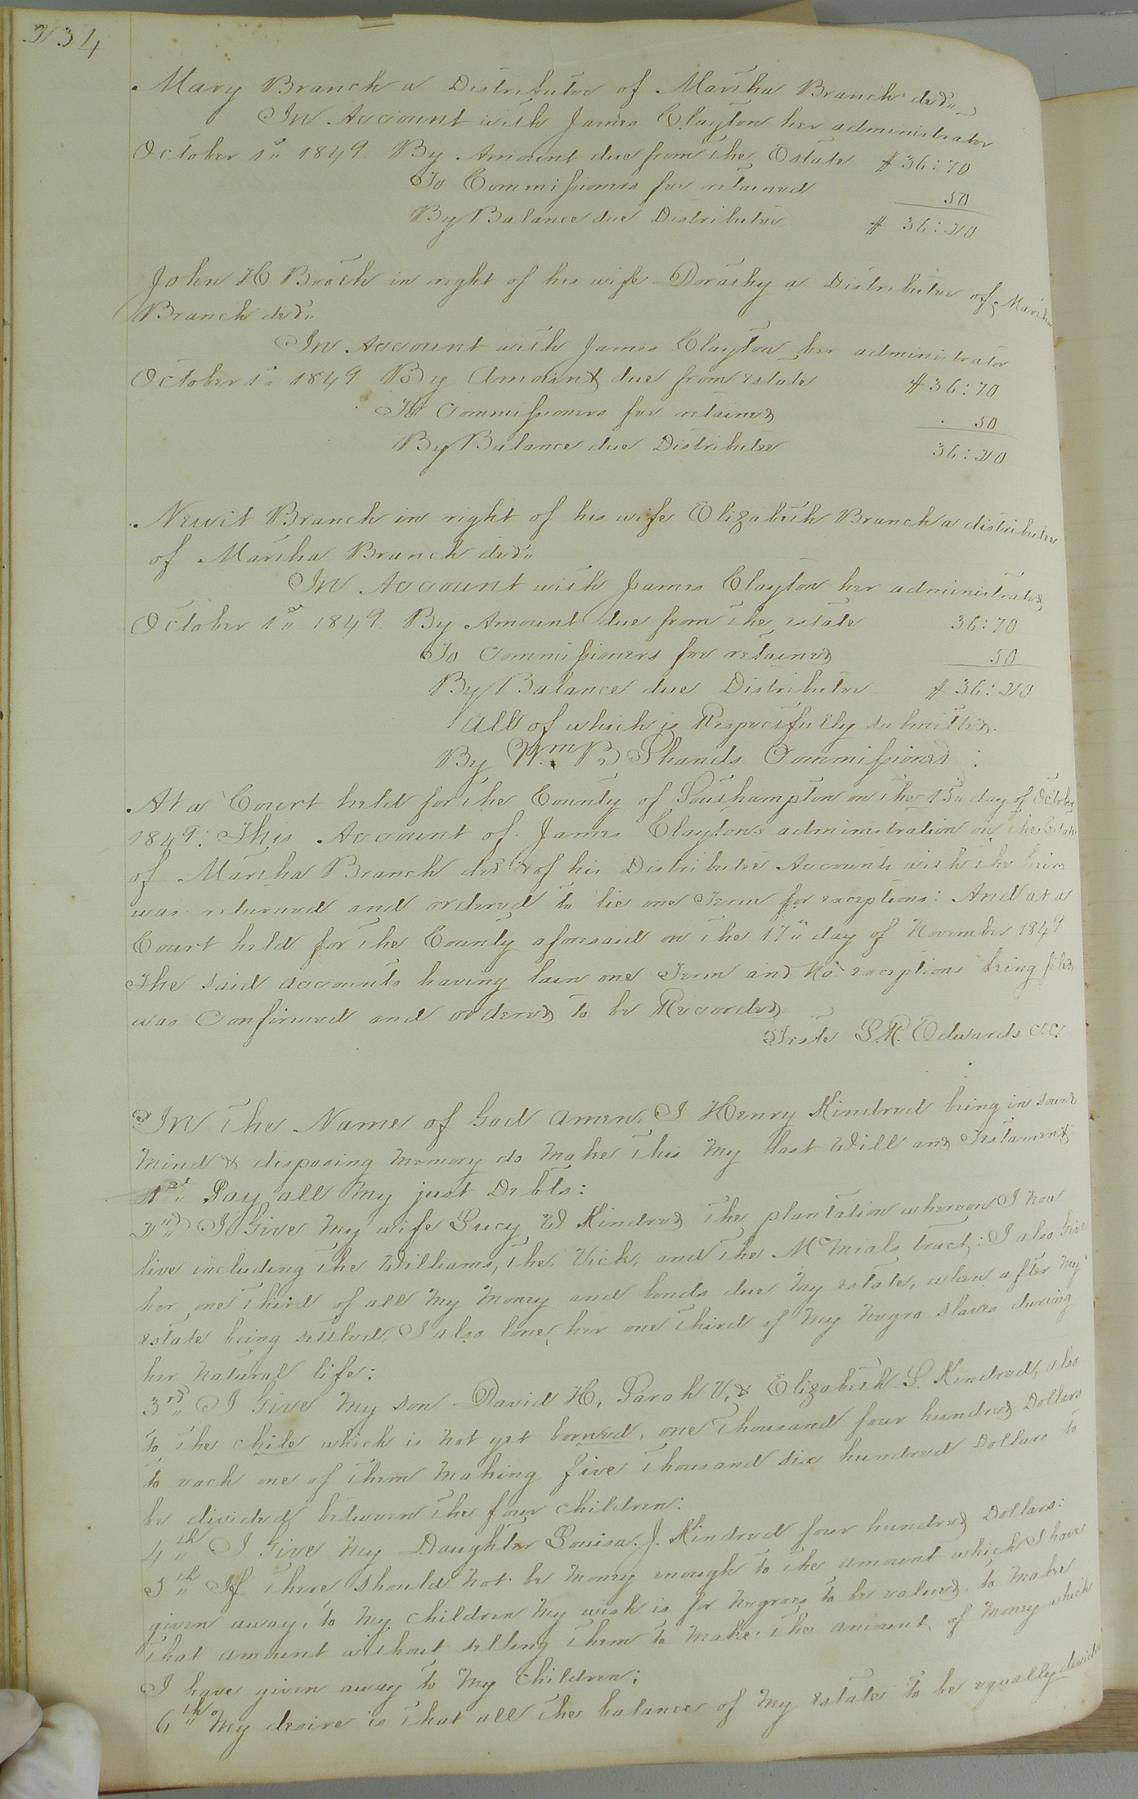 234
Mary Branch a Distributee of Martha Branch decd
In Account with James Clayton her administrator
October 1st 1849. By Amount due from the Estate $ 36:70
To Commissioners fee retained 50
By Balance due Distributee $ 36:20
John H Booth in right of his wife Dorathy a Distributee of Martha
Branch decd
In Account with James Clayton her administrator
October 1st 1849 By Amount due from estate $ 36:70
To Commissioners fee retained 50
By Balance due Distributee 36:20
Newit Branch in right of his wife Elizabeth Branch a distributee
of Martha Branch decd
In Account with James Clayton her administrator
October 1st 1849. By Amount due from the estate 36:70
To Commissioners fee retained 50
By Balance due Distributee $ 36:20
All of which is Respectfully submitted.
By Wm B Shands Commissioner
At a Court held for the County of Southampton on the 15th day of October
1849: This Account of James Clayton's administration on the Estate
of Martha Branch decd & of his Distributee Accounts with the heirs
was returned and ordered to lie one Term for exceptions: And at a
Court held for the County aforesaid on the 17th day of November 1849
The said accounts having lain one Term and no exceptions being filed
was Confirmed and ordered to be Recorded
Teste L.R. Edwards CC.
In the Name of God amen. I Henry Kindred being in sound
mind & disposing memory do make this my last Will and Testament
1st Pay all my just Debts:
2nd I Give my wife Lucy W Kindred the plantation whereon I now
live including the Williams, the Vick, and the McNials tract: I also Give
her one third of all my money and bonds due my estate, when after my
estate being settled. I also lone her one third of my negro slaves during
her natural life:
3rd I Give my son David H, Sarah V, & Elizabeth S. Kindred, also
to the chile which is not yet borned, one thousand four hundred Dollars
to each one of them making five thousand six hundred Dollars to
be divided between the four children:
4th I Give my Daughter Louisa. J. Kindred four hundred Dollars:
5th If there should not be money enough to the amount which I have
given away, to my children my wish is for negroes to be valued to make
that amount without selling them to make the amount of money which
I have given away to my Children:
6th My desire is that all the balance of my estate to be equally divided